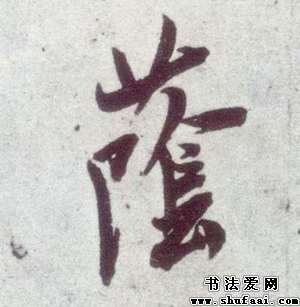 蔭
书法爱网
www.shufaai.com